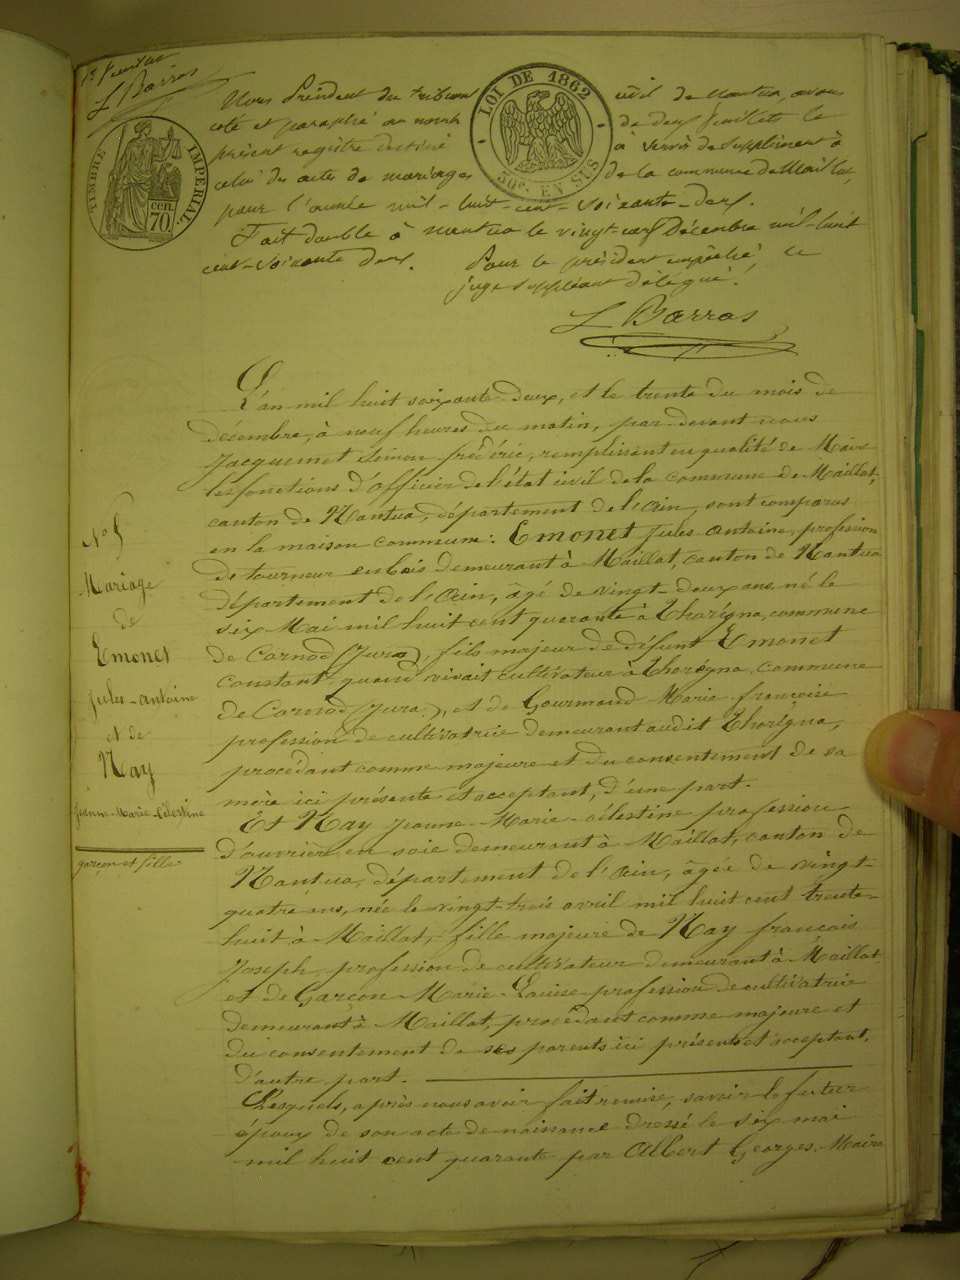 L Barras
Nous Président du tribunal civil de Nantua, avons
coté et paraphé au nombre de deux feuillets le
présent registre destiné à servir de supplément à
celui des actes de mariages de la commune de Maillat,
pour l'année mil-huit-cent-soixante-deux.
Fait double à Nantua le vingt Décembre mil-huit
cent-soixante deux. Pour le président empêché, le
juge suppléant délégué.
L Barras
TIMBRE IMPERIAL
70 cen.
LOI DE 1862
50c. EN SUS
L'an mil huit soixante-deux, et le trente du mois de
décembre, à neuf heures du matin, par-devant nous
Jacquemet Simon frédéric, remplissant en qualité de Maire
les fonctions d'officier de l'état civil de la commune de Maillat,
canton de Nantua, département de l'ain, sont comparus
en la maison commune: Emonet Jules Antoine, profession
de tourneur en bois demeurant à Maillat, canton de Nantua
département de l'Ain, âgé de vingt-deux ans, né le
six Mai mil huit cent quarante à Thorigna, commune
de Cornod (Jura), fils majeur de défunt Emonet
Constant, quand vivait cultivateur à Thorigna, commune
de Cornod (Jura), et de Gourmand Marie françoise
profession de cultivatrice demeurant audit Thorigna,
procédant comme majeure et du consentement de sa
mère ici présente et acceptant, d'une part.
Et Nay Jeanne-Marie-célestine profession
d'ouvrière en soie demeurant à Maillat, canton de
Nantua, département de l'Ain, âgée de vingt-
quatre ans, née le vingt-trois avril mil huit cent trente-
huit à Maillat, fille majeure de Nay françois
Joseph, profession de cultivateur demeurant à Maillat
et de Garçon Marie-Louise profession de cultivatrice
demeurant à Maillat, procédant comme majeure et
du consentement de ses parents ici présents et acceptant,
d'autre part.
Lesquels, après nous avoir fait remise, savoir le futur
époux de son acte de naissance dressé le six mai
mil huit cent quarante par Albert Georges, Maire
N° 5
Mariage
de
Emonet
Jules-Antoine
et de
Nay
Jeanne-Marie-Célestine
garçon et fille